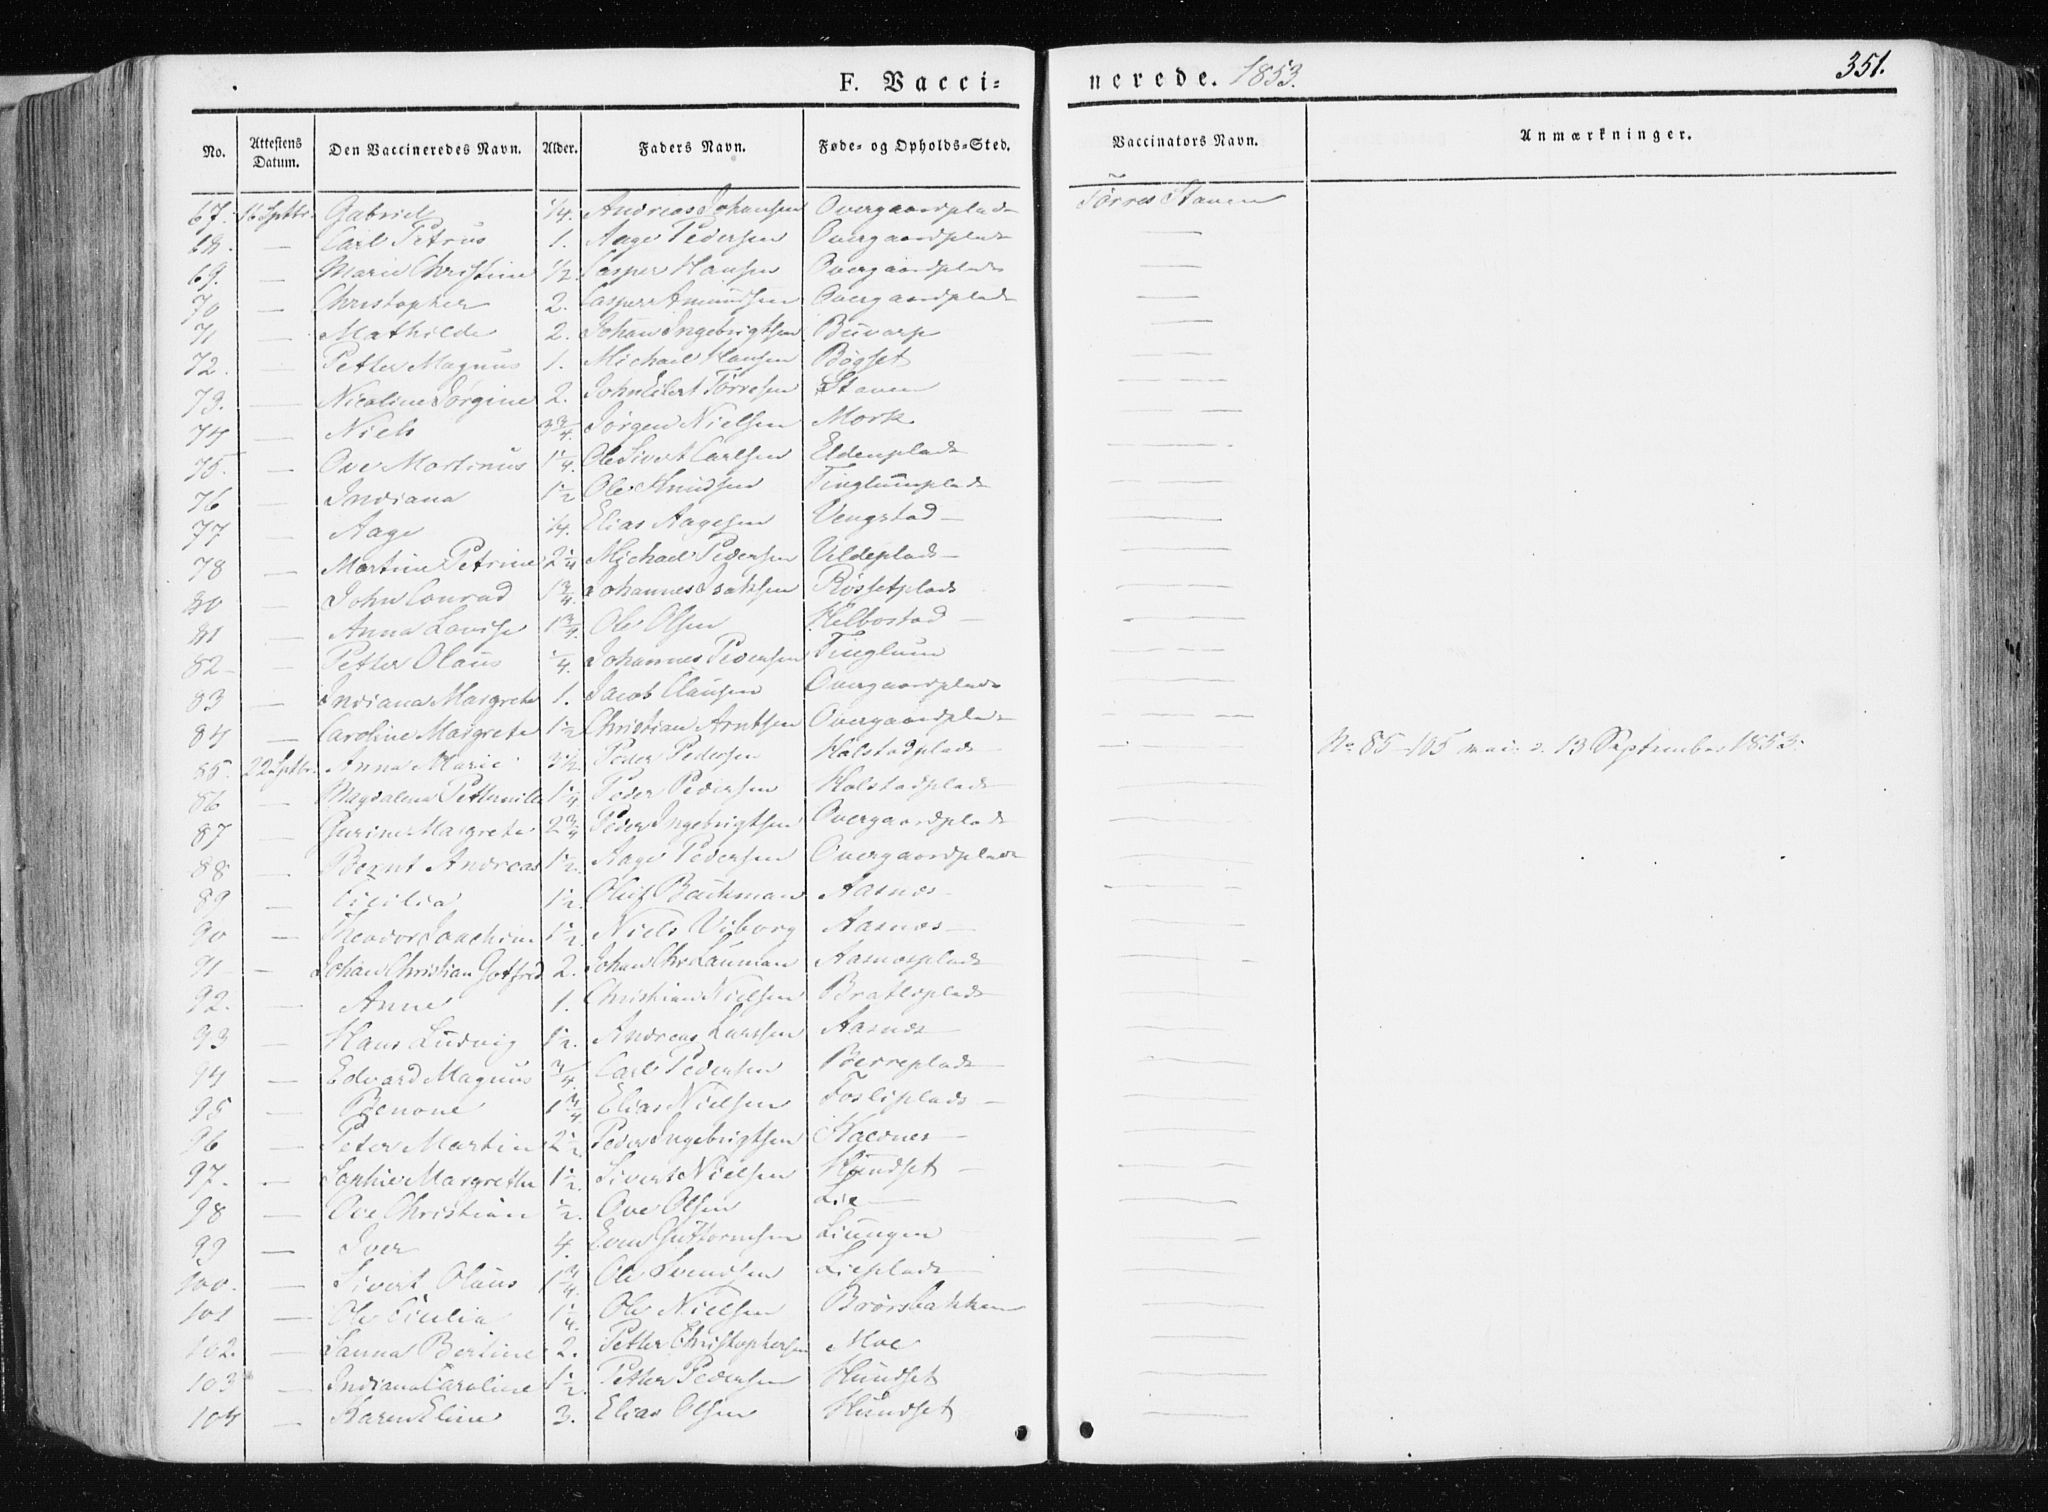 F. Vacci-nerede. 1853. 351.
No. Attestens Datum. Den Vaccineredes Navn. Alder. Faders Navn. Føde- og Opholds-Sted. Vaccinators Navn. Anmærkninger.
67. 16 Septbr. Gabriel 1/4. Andreas Johansen Overgaardplads Törres Staven
68. — Carl Petrus 1. Aage Pedersen Overgaardplads —
69. — Marie Christine 1/2 Casper Hansen Overgaardplads —
70 — Christopher 2. Casper Amundsen Overgaardplads —
71 — Mathilde 2. Johan Ingebrigtsen Buvarp —
72. — Petter Magnus 1. Michael Hansen Bøgset —
73. — Nicoline Jørgine 2. John Eilert Tørresen Staven — —
74 — Niels 3 3/4. Jørgen Nielsen Mork — —
75. — Ove Martinus 1 1/4. Ole Sivert Carlsen Eldenplads —
76 — Indiana 1 1/2 Ole Knudsen Tinglumplads —
77 — Aage 1/4. Elias Aagesen Vengstad —
78 — Martine Petrine 2 1/4 Michael Pedersen Veldeplads —
80 — John Conrad 1 3/4. Johannes Isaksen Røssetplads —
81 — Anna Lovise 1 3/4. Ole Olsen Helbostad —
82 — Petter Olaus 1/4. Johannes Pedersen Tinglum —
83 — Indiana Margrete 1. Jacob Clausen Overgaardplads —
84 — Caroline Margrete 1 1/2 Christian Arntsen Overgaardplads — — —
85. 22 Septbr. Anna Marie 3 1/2. Peder Pedersen Holstadplads — No. 85-105 13 September 1853.
86 — Magdalena Petternille 1 1/4 Peder Pedersen Holstadplads —
87 — Gurine Margrete 2 3/4 Peder Ingebrigtsen Overgaardplads —
88 — Bernt Andreas 1 1/2. Aage Pedersen Overgaardplads —
89 — Cicilia 1 1/2. Oluf Backman Aasnes —
90 — Theodor Joachim 1 1/2. Niels Viborg Aasnes —
91 — Johan Christian Gotfred 2. Johan Chr Lauman Aasnesplads —
92. — Anne 1. Christian Nielsen Bratliplads —
93 — Hans Ludvig 1 1/2. Andreas Larssen Aasnes —
94 — Edvard Magnus 3/4. Carl Pedersen Berreplads —
95 — Benone 1 3/4 Elias Nielsen Fosliplads —
96 — Peter Martin 2 1/2. Peder Ingebrigtsen —
97. — Sophie Margrethe 1 1/2. Sivert Nielsen Hundset —
98 — Ove Christian 1/2. Ove Olsen Lie —
99 — Iver 4. Even Guttormsen Liungen —
100. — Sivert Olaus 1 3/4. Ole Svendsen Lieplads —
101 — Ole Cicilia 1 1/4. Ole Nielsen Brørsbakken —
102. — Sanna Bertine 2. Petter Christophersen Moe —
103 — Indiana Caroline 1 1/2. Petter Pedersen Hundset —
104 — Karen Eline 3. Elias Olsen Hundset —